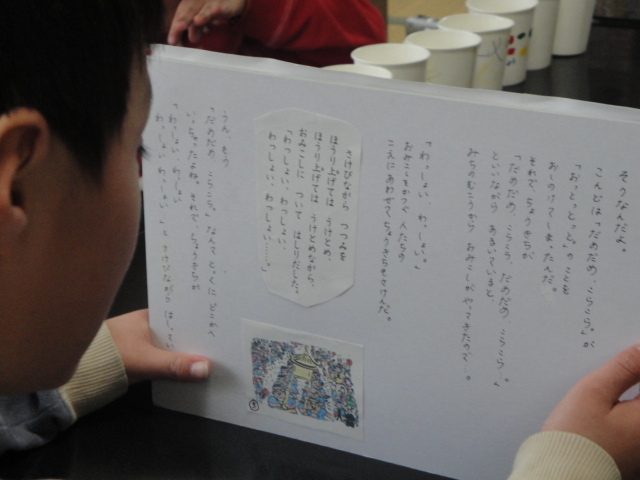 そうなんだよ。
こんどは「だめだめ、こらこら。」が
「おっとっとっと。」のことを
おしのけてしまったんだ。
それで、ちょうきちが
「だめだめ、こらこら、だめだめ、こらこら…。」
といいながら あるいていると、
みちのむこうから おみこしが やってきたので…。
「わっしょい わっしょい。」
おみこをかつぐ 人たちの
こえに あわせて ちょうきちもさけんだ。
さけびながら つつみを
ほうり上げては うけとめ、
ほうり上げては うけとめながら、
おみこしに ついて はしりだした。
「わっしょい、わっしょい、
わっしょい、わっしょい……。」
うん、もう
「だめだめ、こらこら。」なんて とっくに どこかへ
いっちゃったよね。それで、ちょうきちが
「わっしょい わっしょい
わっしょい わっしょい。」と さけびながら はしって
⑤